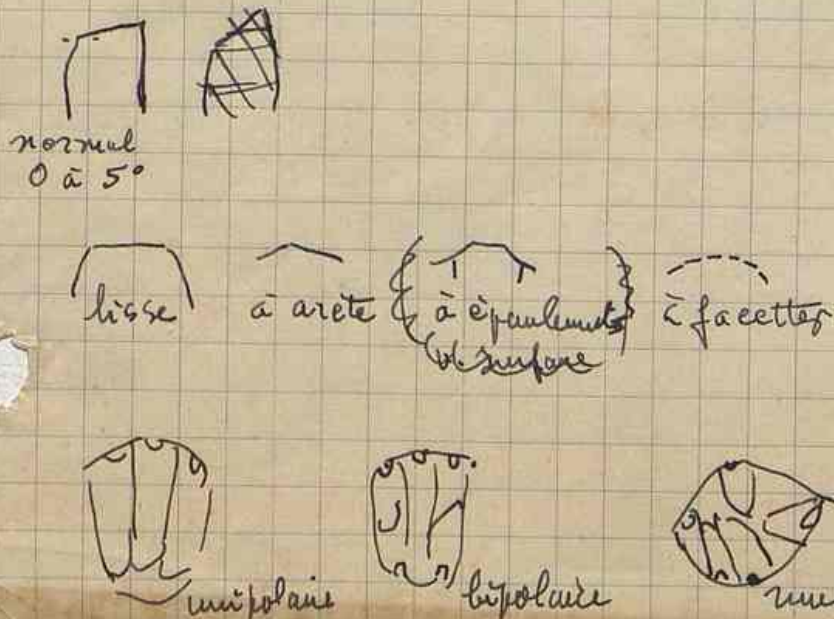 normal
0 à 5°
lisse
à arète
à épaulements
à facettes
unipolaire
bipolaire